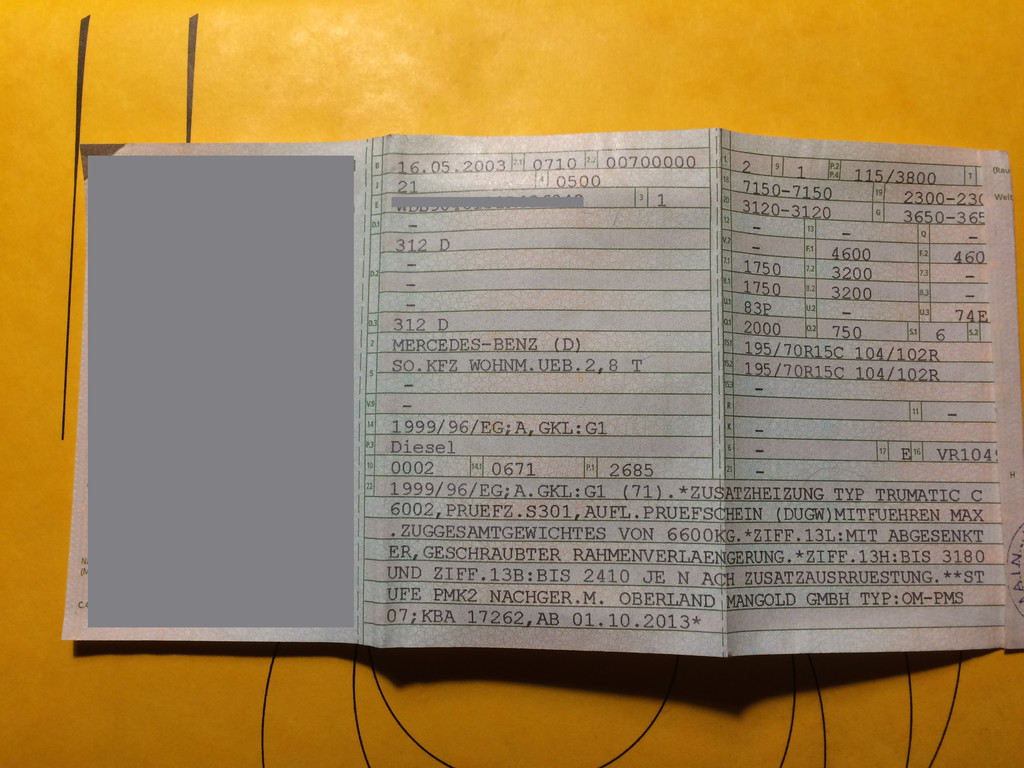 B 16.05.2003 2.1 0710 2.2 00700000
J 21 4 0500
E 3 1
D.1 -
312 D
D.2 -
-
-
D.3 312 D
2 MERCEDES-BENZ (D)
5 SO.KFZ WOHNM.UEB.2,8 T
-
V.9 -
14 1999/96/EG;A,GKL:G1
P.3 Diesel
10 0002 14.1 0671 P.1 2685
L 2 9 1 P.2 P.4 115/3800 T
18 7150-7150 19 2300-230
20 3120-3120 G 3650-365
12 - 13 - Q -
V.7 - F.1 4600 F.2 460
7.1 1750 7.2 3200 7.3 -
8.1 1750 8.2 3200 8.3 -
U.1 83P U.2 - U.3 74E
O.1 2000 O.2 750 S.1 6 S.2
15.1 195/70R15C 104/102R
15.2 195/70R15C 104/102R
15.3 -
R 11 -
K -
6 - 17 E 16 VR104
21 -
22 1999/96/EG;A.GKL:G1 (71).*ZUSATZHEIZUNG TYP TRUMATIC C
6002,PRUEFZ.S301,AUFL.PRUEFSCHEIN (DUGW)MITFUEHREN MAX
.ZUGGESAMTGEWICHTES VON 6600KG.*ZIFF.13L:MIT ABGESENKT
ER,GESCHRAUBTER RAHMENVERLAENGERUNG.*ZIFF.13H:BIS 3180
UND ZIFF.13B:BIS 2410 JE N ACH ZUSATZAUSRRUESTUNG.**ST
UFE PMK2 NACHGER.M. OBERLAND MANGOLD GMBH TYP:OM-PMS
07;KBA 17262,AB 01.10.2013*